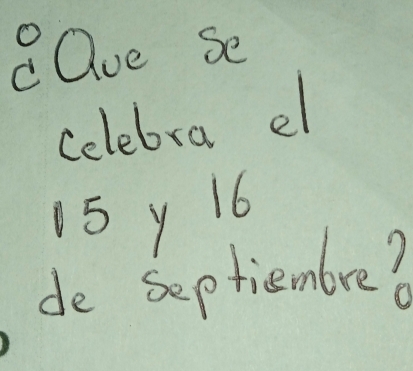 ¿Que se
celebra el
15 y 16
de Septiembre?